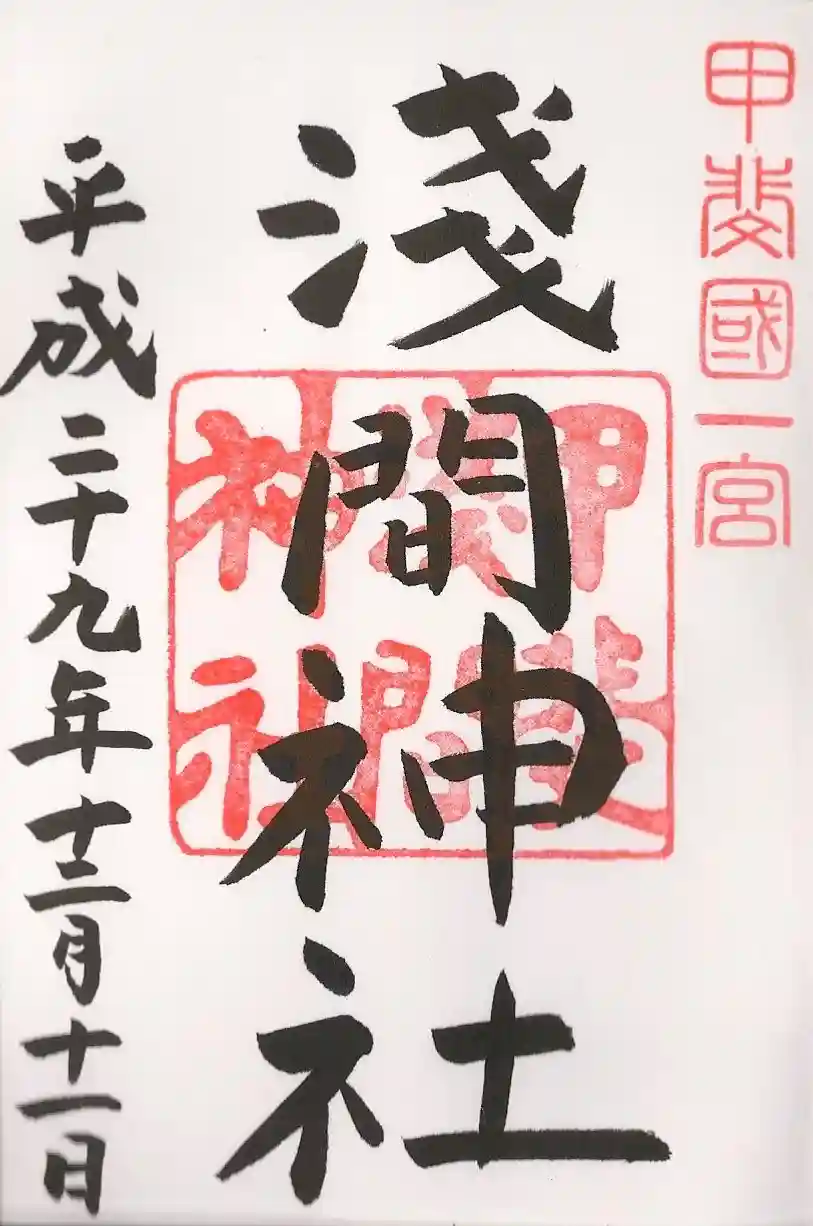 甲斐國一宮
淺間神社
甲斐
淺間
神社
平成二十九年十二月十一日